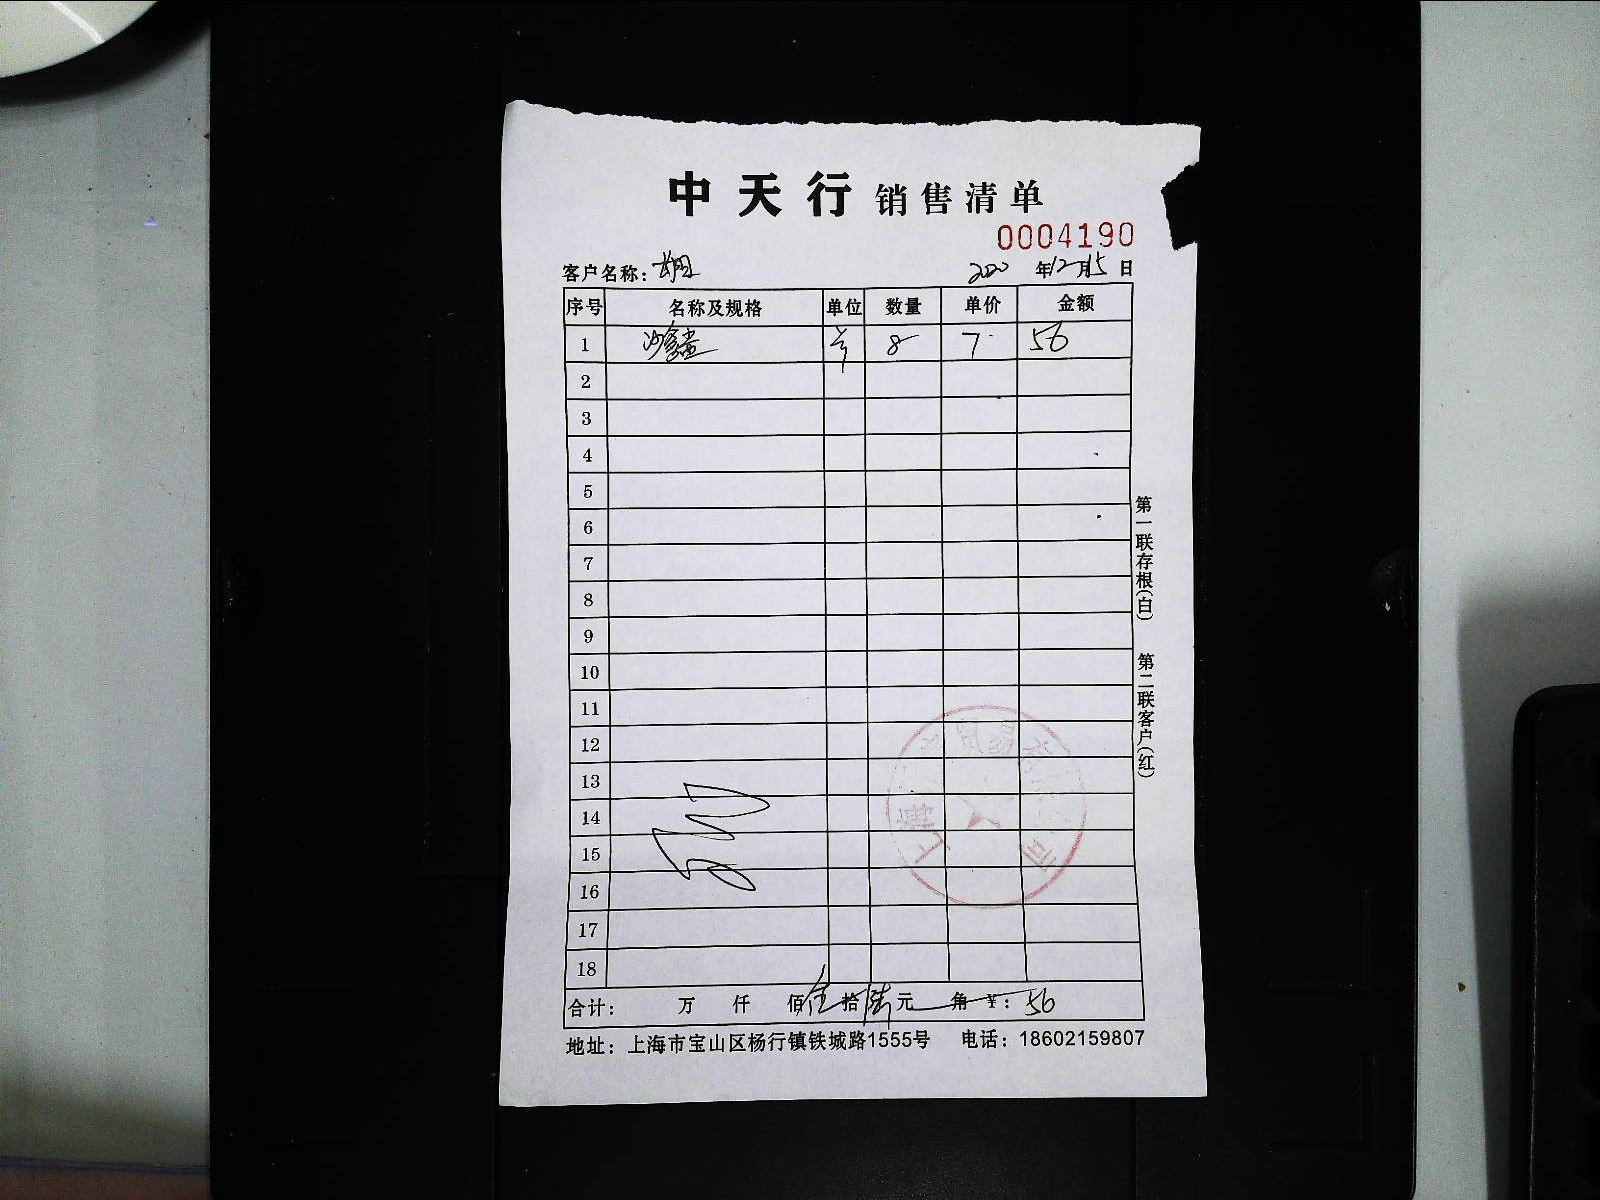 中天行 销售清单
0004190
客户名称: 2020 年 12 月 15 日
序号 名称及规格 单位 数量 单价 金额
1 8 7 56
2
3
4
5
6
7
8
9
10
11
12
13
14
15
16
17
18
合计: 万 仟 佰 伍 拾 陆 元 角 ¥: 56
地址: 上海市宝山区杨行镇铁城路1555号 电话: 18602159807
第一联存根(白) 第二联客户(红)